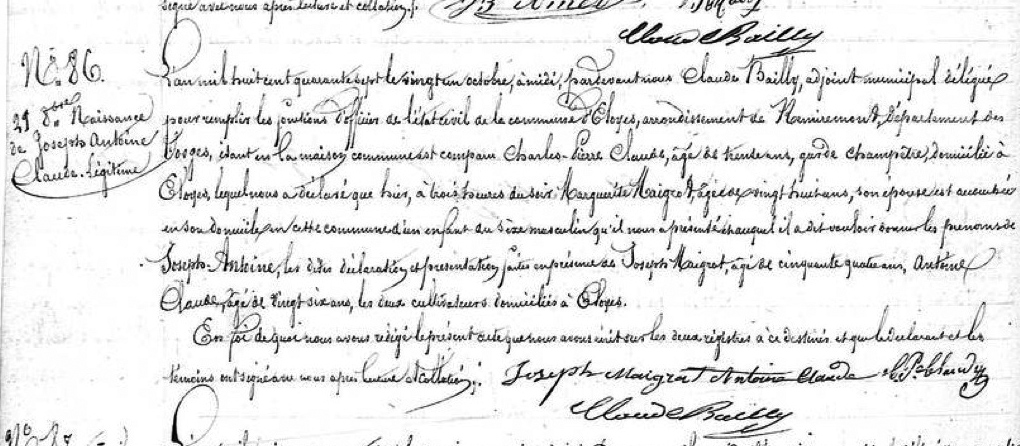 signé avec nous après lecture et collation ./.
Claude Bailly
N.° 86.
21 8.bre Naissance
de Joseph Antoine
Claude. Légitime
L'an mil huit cent quarante sept le vingt un octobre, à midi, pardevant nous Claude Bailly, adjoint municipal délégué
pour remplir les fonctions d'officier de l'état civil de la commune d'Eloyes, arrondissement de Remiremont, Département des
Vosges, étant en la maison commune est comparu Charles-Pierre Claude, âgé de trente ans, garde champêtre, domicilié à
Eloyes, lequel nous a déclaré que hier, à trois heures du soir Marguerite Maigrat, âgée de vingt huit ans, son épouse est accouchée
en son domicile en cette commune d'un enfant du sèxe masculin qu'il nous a présenté et auquel il a dit vouloir donner les prénoms de
Joseph-Antoine, les dites déclaration et présentation faites en présence de Joseph Maigrat, âgé de cinquante quatre ans, Antoine
Claude, âgé de vingt six ans, les deux cultivateurs domiciliés à Eloyes.
En foi de quoi nous avons rédigé le présent acte que nous avons écrit sur les deux régistres à ce destinés et que le déclarant et les
témoins ont signé avec nous après lecture et collation ./.
Joseph Maigrat Antoine Claude C. P. Claude
Claude Bailly
N.°